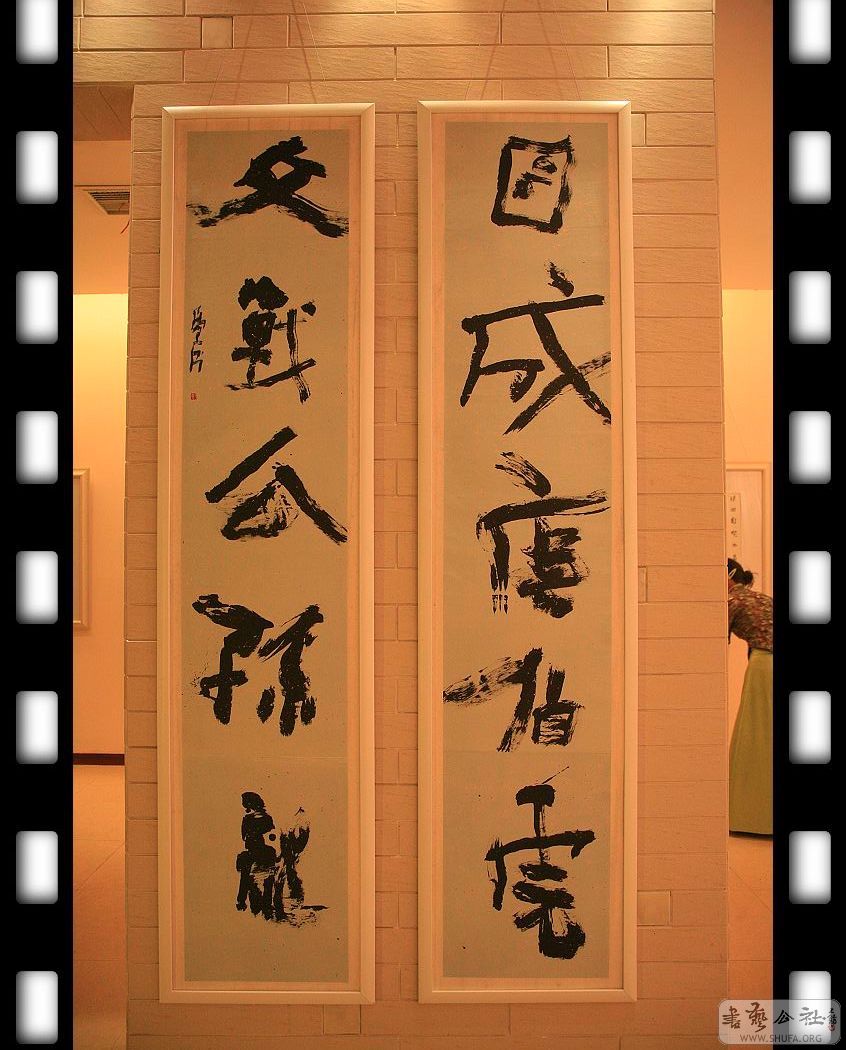 成唐伯虎
文戰公孫龍
書藝公社
WWW.SHUFA.ORG